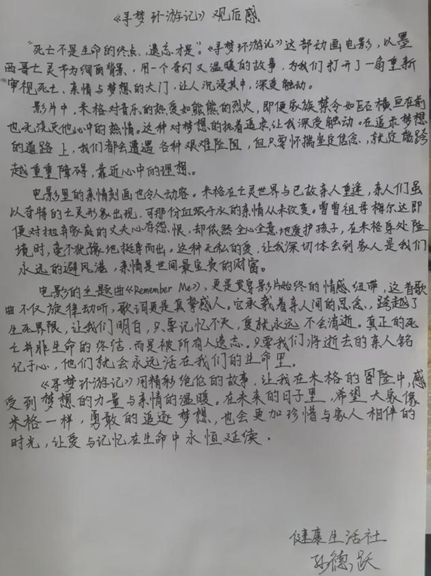 《寻梦环游记》观后感
"死亡不是生命的终点，遗忘才是"。《寻梦环游记》这部动画电影，以墨
西哥亡灵节为绚丽背景，用一个奇幻又温暖的故事，为我们打开了一扇重新
审视死亡、亲情与梦想的大门，让人沉浸其中，深受触动。
影片中，米格对音乐的热爱如熊熊的烈火，即便家族禁令如巨石横亘在前
也无法灭他心中的热情。这种对梦想的执着追求让我深受触动。在追求梦想
的道路上，我们都会遭遇各种艰难险阻，但只要怀揣坚定信念，就定能跨
越重重障碍，靠近心中的理想。
电影里的亲情刻画也令人动容。米格在亡灵世界与已故亲人重逢，亲人们虽
以奇特的亡灵形象出现，可那份血浓于水的亲情从未改变。曾曾祖母梅尔达即
便对抛弃家庭的丈夫心存怨恨，却依然全心全意地庇护孩子，在米格身处险
境时，毫不犹豫地挺身而出。这种无私的爱，让我深切体会到家人是我们
永远的避风港，亲情是世间最宝贵的财富。
电影的主题曲《Remember Me》，是贯穿影片始终的情感纽带，这首歌
曲不仅旋律动听，歌词更是真挚感人，它承载着亲人间的思念，跨越了
生死界限，让我们明白，只要记忆不灭，爱就永远不会消逝。真正的死
亡并非生命的终结，而是被所有人遗忘。只要我们将逝去的亲人铭
记于心，他们就会永远活在我们的生命里。
《寻梦环游记》用精彩绝伦的故事，让我在米格的冒险中，感
受到梦想的力量与亲情的温暖。在未来的日子里，希望大家像
米格一样，勇敢的追逐梦想，也会更加珍惜与家人相伴的
时光，让爱与记忆在生命中永恒延续。
健康生活社
孙德跃